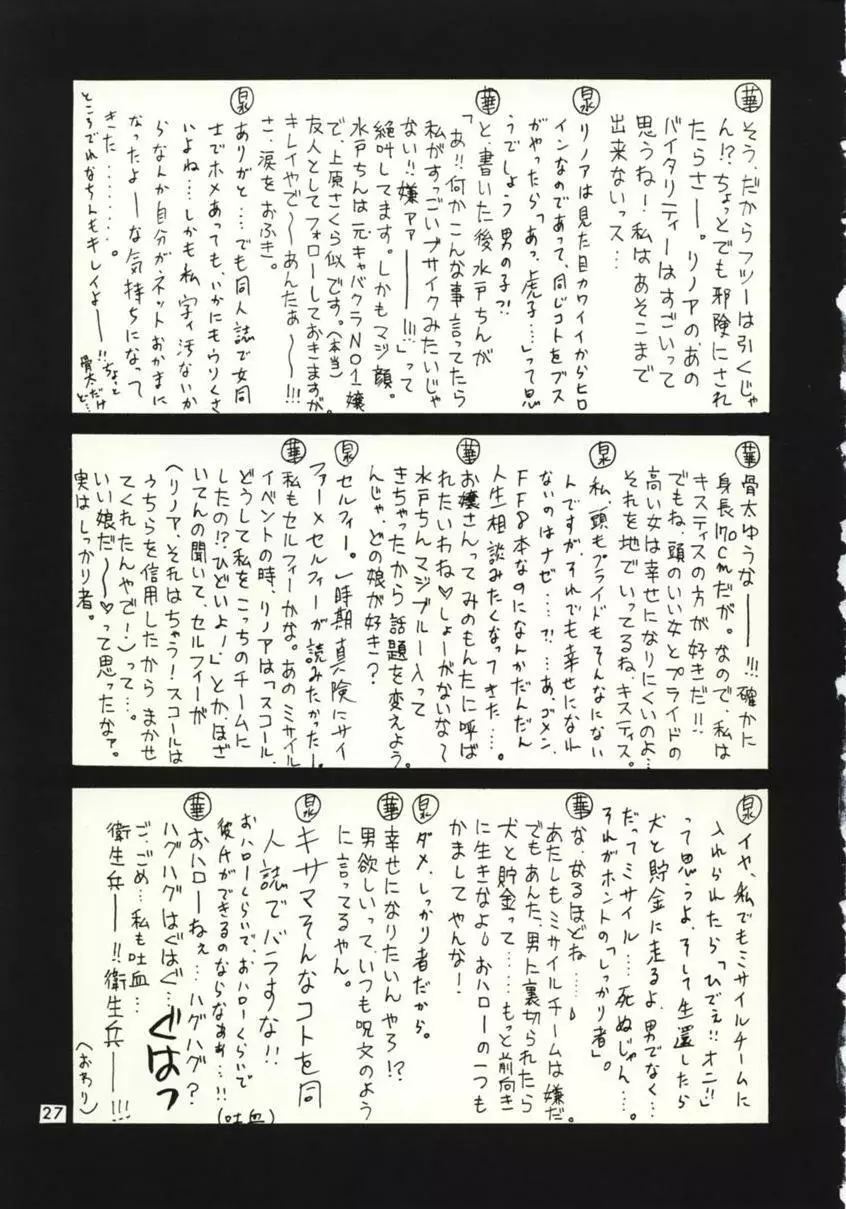 華 そう、だからフツーは引くじゃ
ん!?ちょっとでも邪険にされ
たらさー。リノアのあの
バイタリティーはすごいって
思うね!私はあそこまで
出来ないっス…
泉 リノアは見た目カワイイからヒロ
インなのであって、同じコトをブス
がやったら「あっ、虎子…」って思
うでしょう男の子?!
華 と、書いた後水戸ちんが
「あ!!何かこんな事言ってたら
私がすっごいブサイクみたいじゃ
ない!!嫌アァ――!!!」って
絶叫してます。しかもマジ顔。
水戸ちんは元キャバクラNO1嬢
で、上原さくら似です。(本当)
友人としてフォローしておきますが
キレイやで〜〜あんたぁ〜〜!!!
さ、涙をおふき。
泉 ありがと…でも同人誌で女同
士でホメあっても、いかにもウソくさ
いよね…しかも私、字ィ汚ないか
らなんか自分がネットおかまに
なったよ――な気持ちになって
きた………。
ところでれなちんもキレイよ――!!ちょっと
骨太だけ
ど…
華 骨太ゆうな――!!!確かに
身長170cmだが。なので、私は
キスティスの方が好きだ!!
でもね、頭のいい女とプライドの
高い女は幸せになりにくいのよ…
それを地でいってるね、キスティス。
泉 私、頭もプライドもそんなにない
んですが、それでも幸せになれ
ないのはナゼ…?!…あ、ゴメン、
FF8本なのになんかだんだん
人生相談みたくなってきた…。
華 お嬢さんってみのもんたに呼ば
れたいわね♡しょーがないなぁ
水戸ちんマジブルー入って
きちゃったから話題を変えよう。
んじゃ、どの娘が好き?
泉 セルフィー。一時期真険にサイ
ファー×セルフィーが読みたかったー。
華 私もセルフィーかな。あのミサイル
イベントの時、リノアは「スコール、
どうして私をこっちのチームに
したの!?ひどいよ!」とか、ほざ
いてんの聞いて、セルフィーが
(リノア、それはちゃう!スコールは
うちらを信用したからまかせ
てくれたんやで!)って…。
いい娘だ〜〜♡って思ったなァ。
実はしっかり者。
泉 イヤ、私でもミサイルチームに
入れられたら「ひでぇ!!オニ!!」
って思うよ、そして生還したら
犬と貯金に走るよ、男でなく…
だってミサイル…死ぬじゃん…。
それがホントの「しっかり者」。
華 な、なるほどね…
あたしもミサイルチームは嫌だ。
でもあんた、男に裏切られたら
犬と貯金って……もっと前向き
に生きなよ おハローの一つも
かましてやんな!
泉 ダメ、しっかり者だから。
華 幸せになりたいんやろ!?
男欲しいって、いつも呪文のよう
に言ってるやん。
泉 キサマそんなコトを同
人誌でバラすな!!
おハローくらいで、おハローくらいで
彼氏ができるのならなぁぁ…!!
(吐血)
華 おハローねぇ…ハグハグ?
ハグハグはぐはぐ…ぐはっ
ご、ごめ…私も吐血…
衛生兵――!!衛生兵――!!!
(おわり)
27